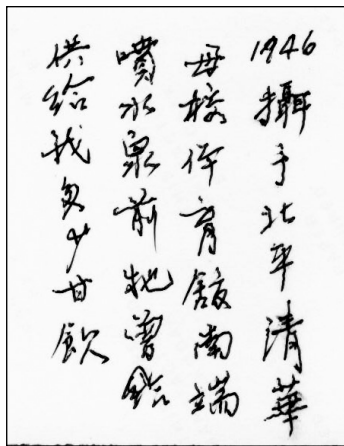 1946攝于北平清華
母校体育館南端
噴水泉前牠曾給
供給我多少甘飲